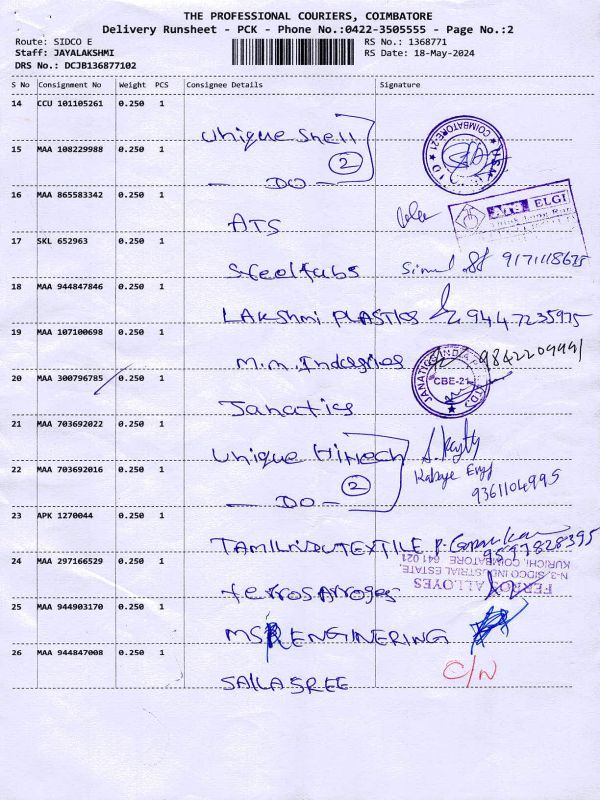 THE PROFESSIONAL COURIERS, COIMBATORE
Delivery Runsheet - PCK - Phone No.:0422-3505555 - Page No.:2
Route: SIDCO E
RS No.: 1368771
Staff: JAYALAKSHMI
RS Date: 18-May-2024
DRS No.: DCJB136877102
S No Consignment No Weight PCS Consignee Details Signature
14 CCU 101105261 0.250 1
Unique Shell
COIMBATORE-21
15 MAA 108229988 0.250 1
2
DO
16 MAA 865583342 0.250 1
ELGI
ATS
17 SKL 652963 0.250 1
Steelfabs
18 MAA 944847846 0.250 1
LAKShmi PLASTICS 9447235975
19 MAA 107100698 0.250 1
9842209991
20 MAA 300796785 0.250 1
JANATICS INDIA
CBE-21
Janatics
21 MAA 703692022 0.250 1
Unique Hitech
22 MAA 703692016 0.250 1
2
9361104995
DO
23 APK 1270044 0.250 1
TAMILNADUTEXTILE
9597828395
24 MAA 297166529 0.250 1
FERROS ALLOYES
N-3, SIDCO INDUSTRIAL ESTATE,
KURICHI, COIMBATORE 641 021
25 MAA 944903170 0.250 1
ENGINERING
26 MAA 944847008 0.250 1
C/N
SAILA SREE